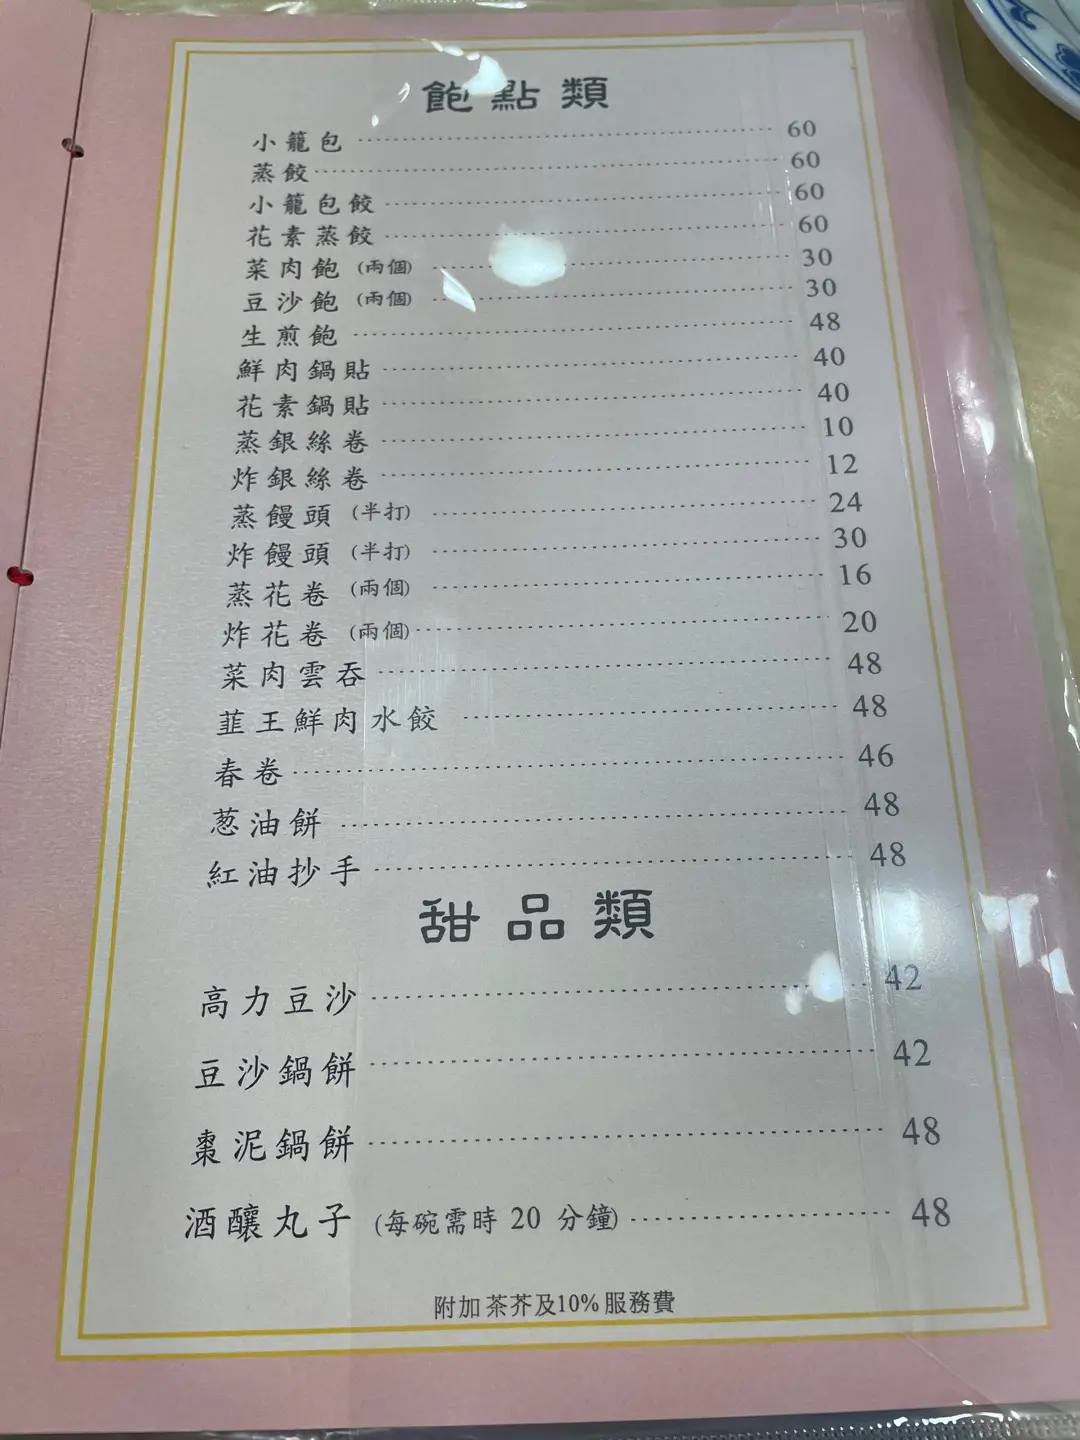 飽點類
小籠包 60
蒸餃 60
小籠包餃 60
花素蒸餃 60
菜肉飽 (兩個) 30
豆沙飽 (兩個) 30
生煎飽 48
鮮肉鍋貼 40
花素鍋貼 40
蒸銀絲卷 10
炸銀絲卷 12
蒸饅頭 (半打) 24
炸饅頭 (半打) 30
蒸花卷 (兩個) 16
炸花卷 (兩個) 20
菜肉雲吞 48
韮王鮮肉水餃 48
春卷 46
葱油餅 48
紅油抄手 48
甜品類
高力豆沙 42
豆沙鍋餅 42
棗泥鍋餅 48
酒釀丸子 (每碗需時 20 分鐘) 48
附加茶芥及10%服務費